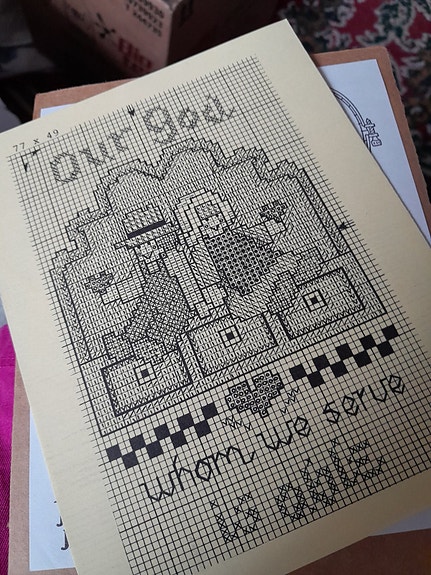 77 x 49
our god
whom we serve
is able